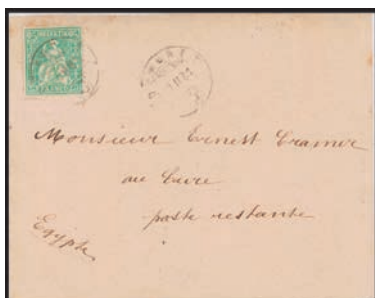 Monsieur Ernest Cramer
au Caire
poste restante
Egypte